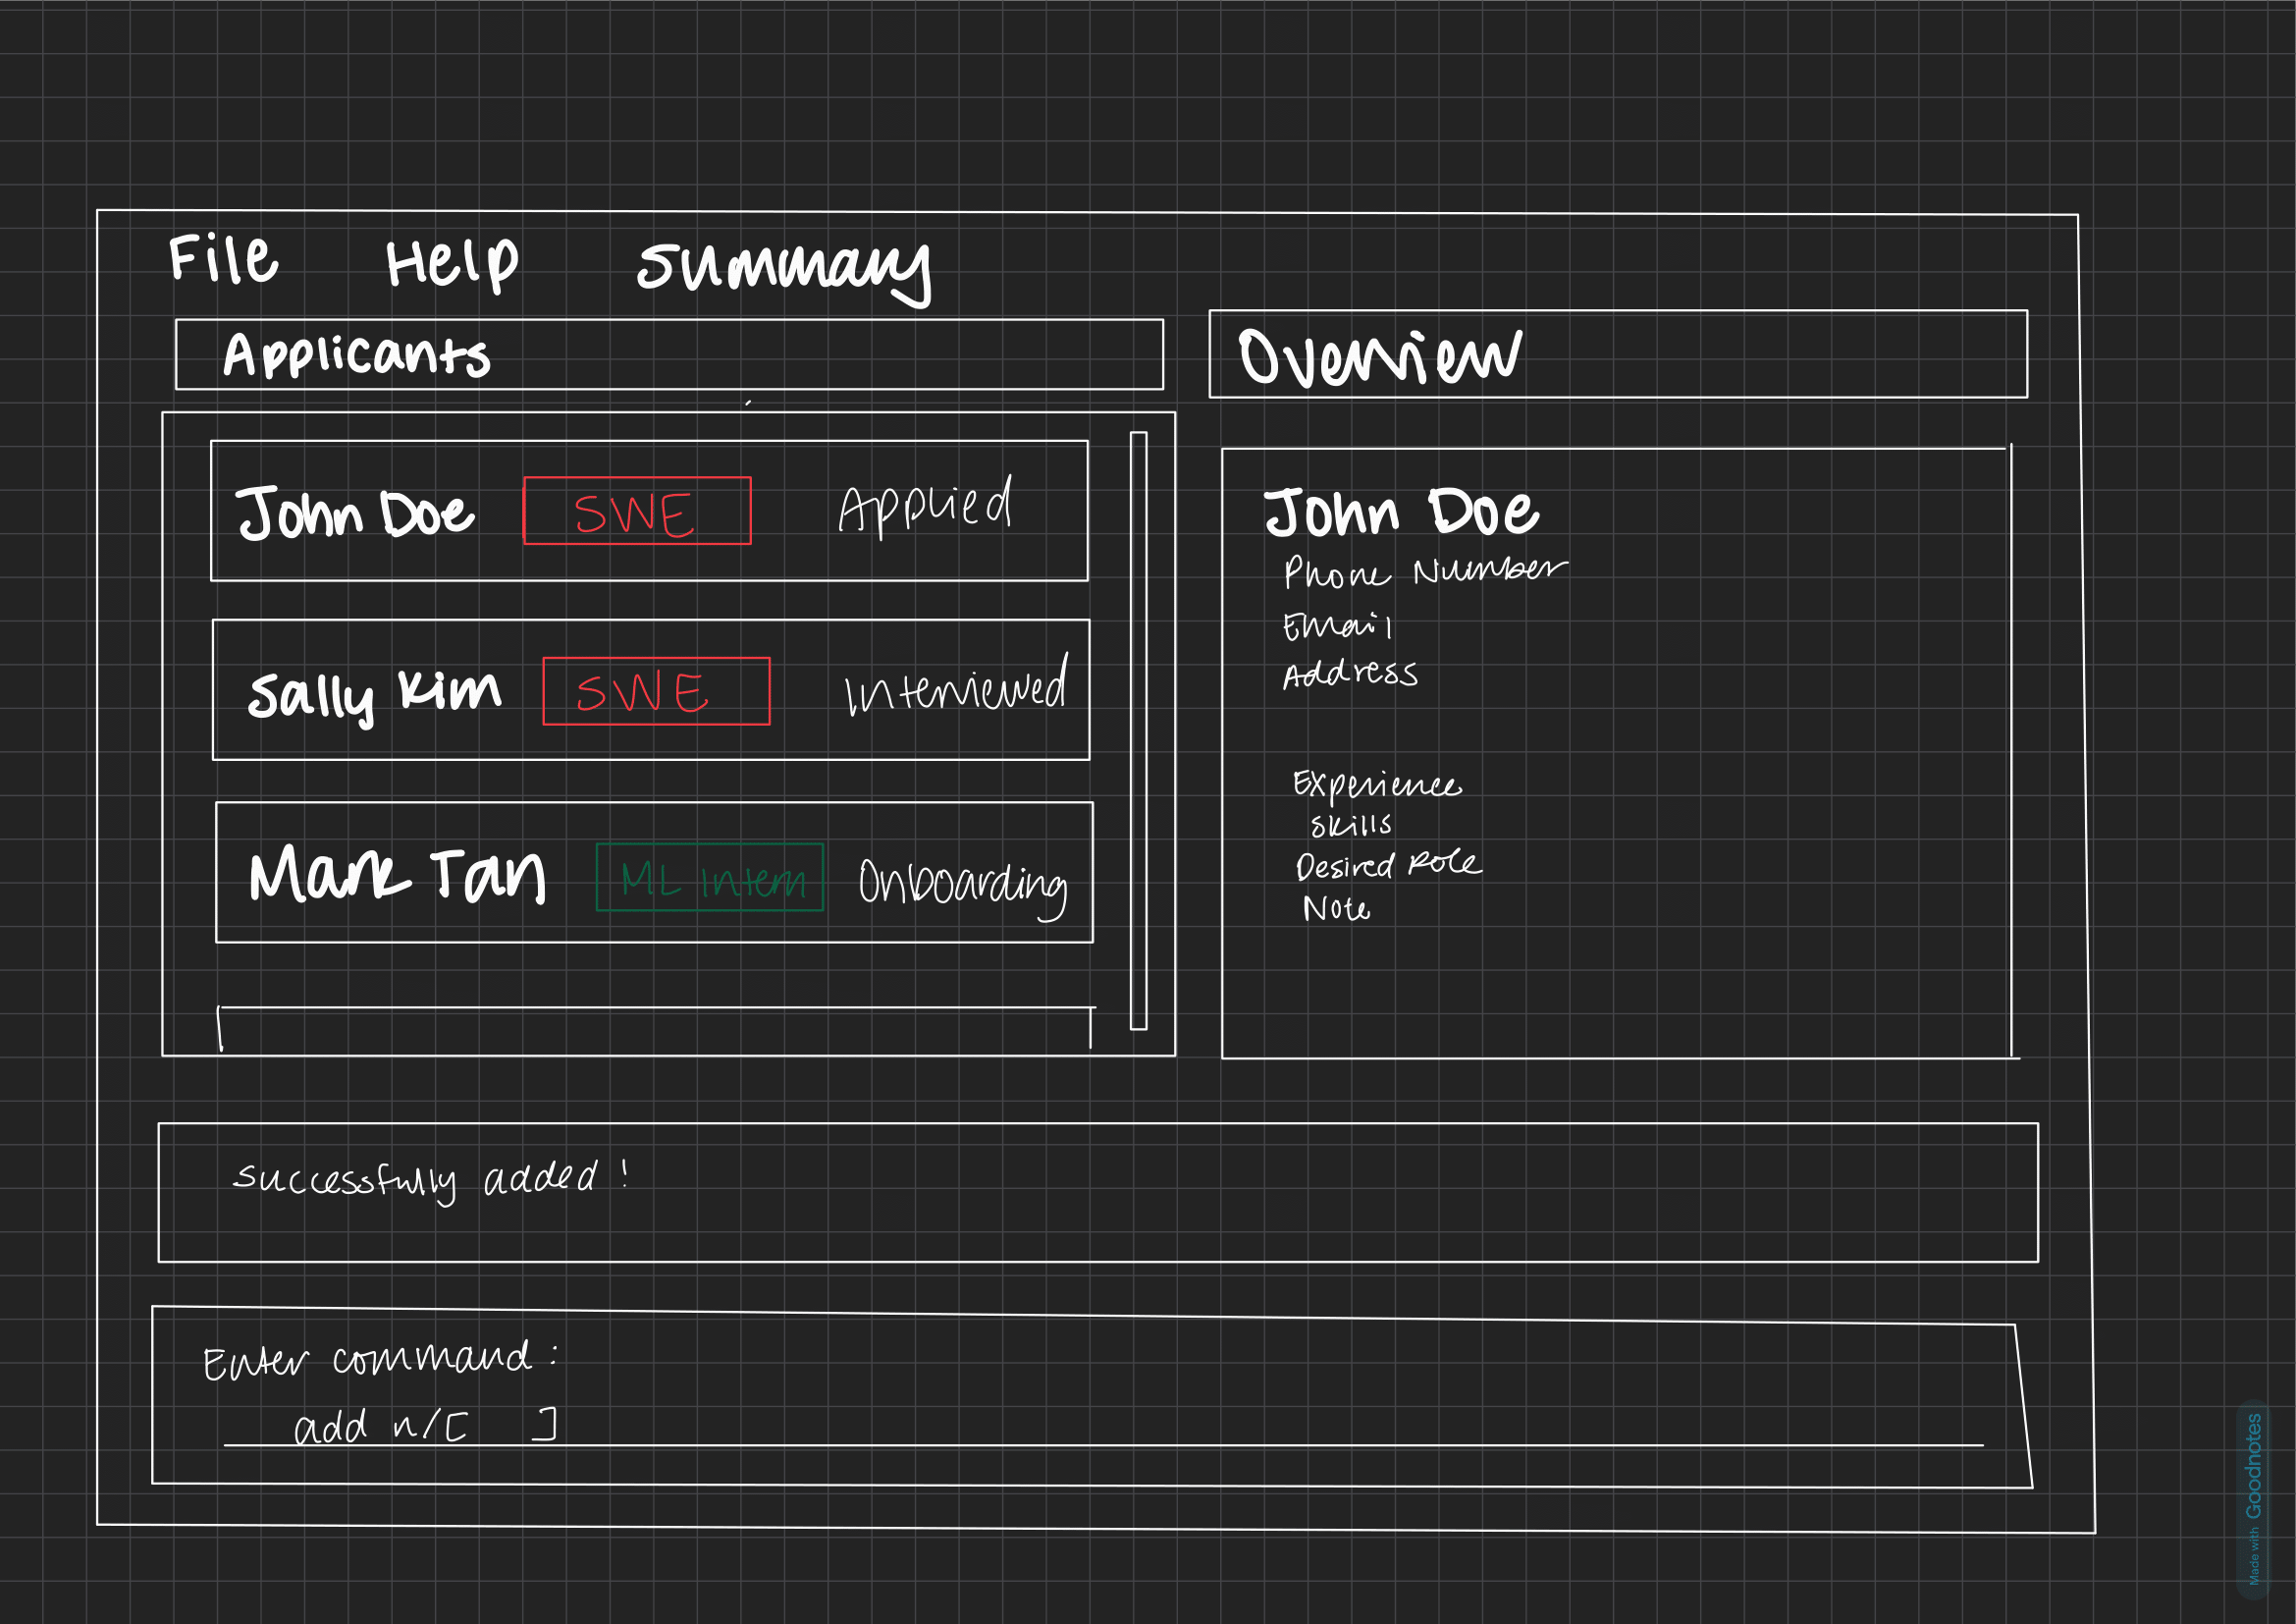 File Help Summary
Applicants
Overview
John Doe SWE Applied
Sally Kim SWE Interviewed
Mark Tan ML Intern Onboarding
John Doe
Phone Number
Email
Address
Experience
Skills
Desired Role
Note
Successfully added !
Enter command :
add n/[ ]
Made with Goodnotes